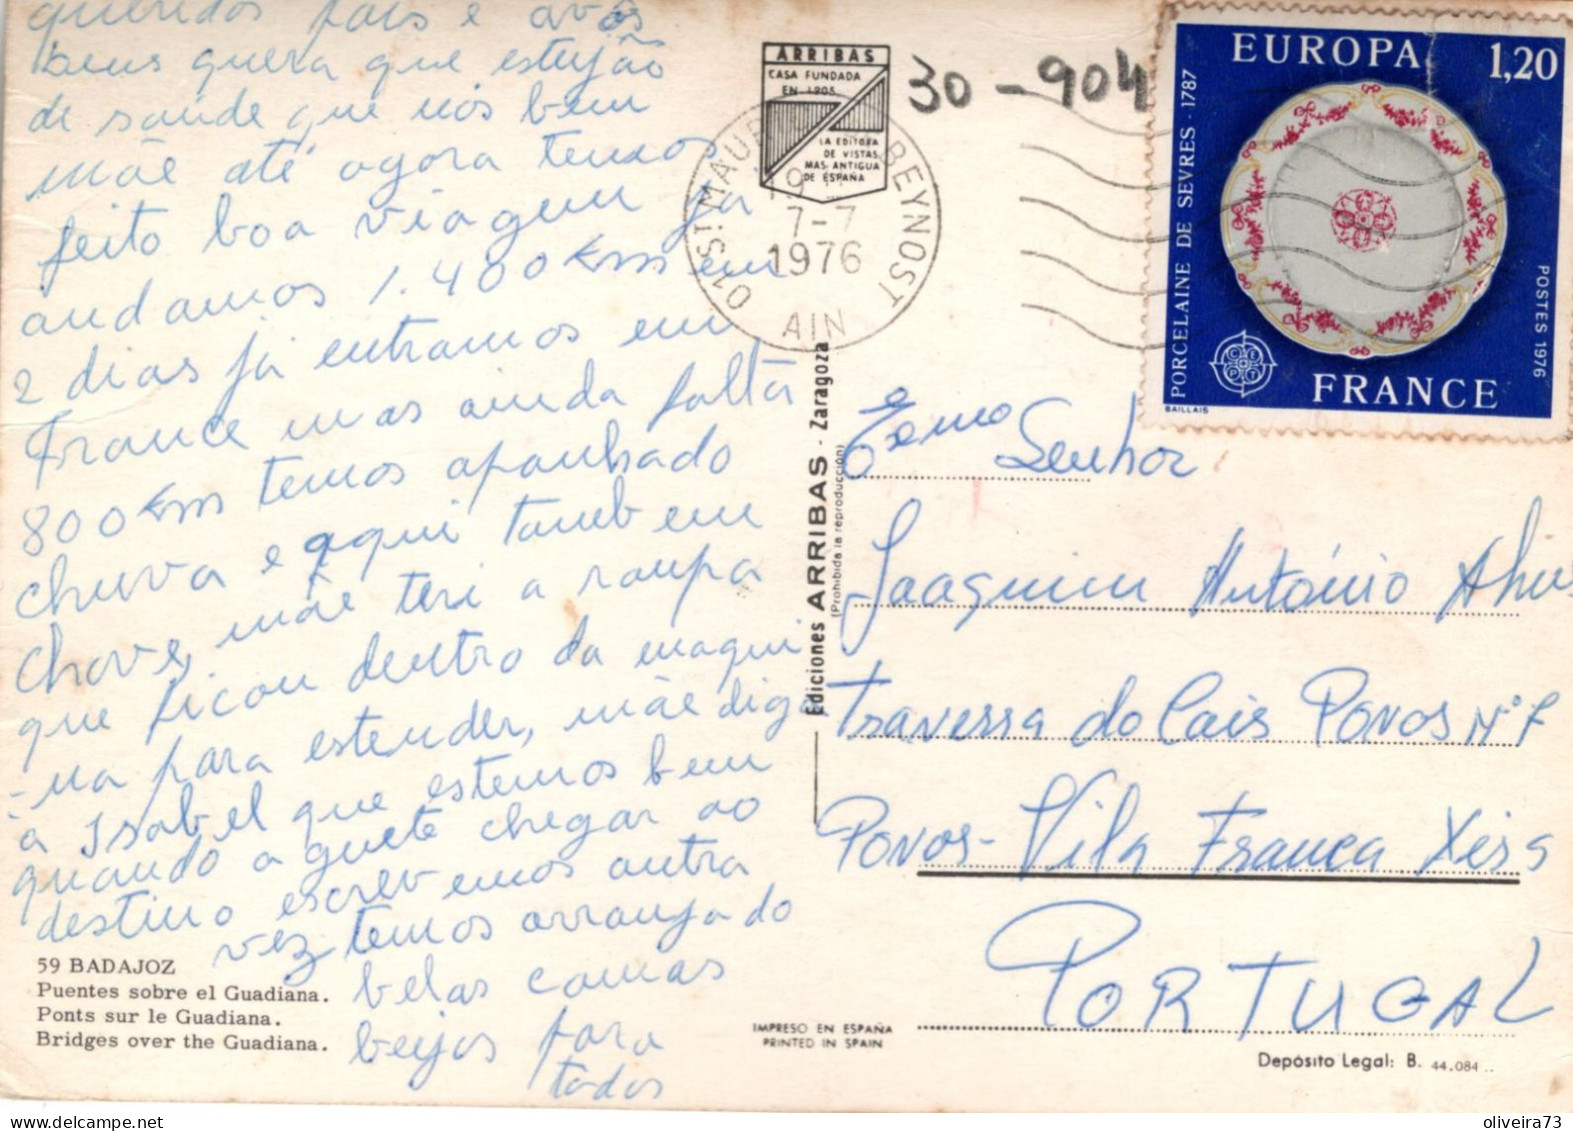 queridos pais e avós
beus quera que estejão
de saúde que nós bem
mãe até agora temos
feito boa viagem já
andamos 1.400 km em
2 dias já entramos em
France mas ainda falta
800 km temos apanhado
chuva e aqui tambem
chove, mãe teri a roupa
que ficou dentro da maqui
-na para estender, mãe diga
a Isabel que estemos bem
quando aguete chegar ao
destino escrevemos outra
vez temos arranjado
belas camas
beijos para
todos
59 BADAJOZ
Puentes sobre el Guadiana.
Ponts sur le Guadiana.
Bridges over the Guadiana.
ARRIBAS
CASA FUNDADA
EN 1905
LA EDITORA
DE VISTAS
MAS ANTIGUA
DE ESPAÑA
30 - 904
01 ST MAURICE BEYNOST
7-7
1976
AIN
EUROPA 1,20
PORCELAINE DE SEVRES - 1787
POSTES 1976
CEPT
FRANCE
BAILLAIS
Ediciones ARRIBAS - Zaragoza
(Prohibida la reproducción)
Exmo Senhor
Joaquim António
Travessa do Cais Povos Nº
Povos - Vila Franca Xira
PORTUGAL
IMPRESO EN ESPAÑA
PRINTED IN SPAIN
Depósito Legal: B. 44.084
oliveira73